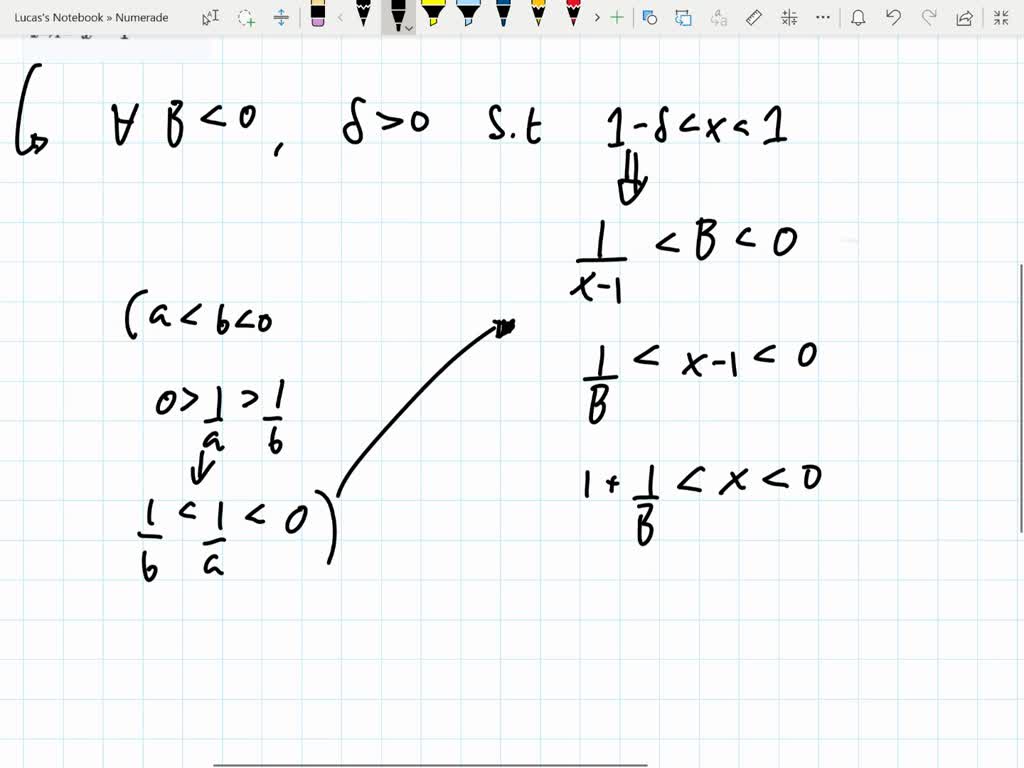 Lucas's Notebook » Numerade
∀ B < 0 , δ > 0 s.t 1 - δ < x < 1
⇓
1/(x-1) < B < 0
(a < b < 0
1/B < x-1 < 0
0 > 1/a > 1/b
↓
1 + 1/B < x < 0
1/b < 1/a < 0)